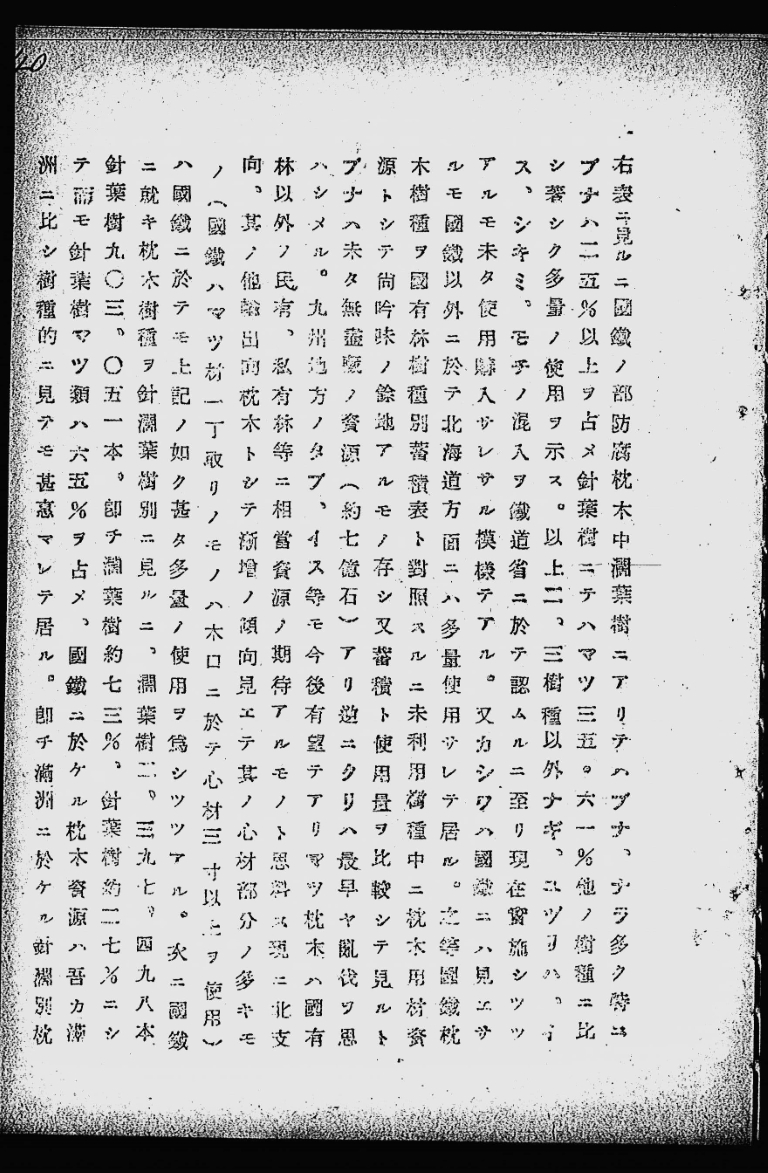 40
右表ニ見ルニ國鐵ノ部防腐枕木中濶葉樹ニアリテハブナ、ナラ多ク特ニ
ブナハ二五%以上ヲ占メ針葉樹ニテハマツ三五。六一%他ノ樹種ニ比
シ著シク多量ノ使用ヲ示ス。以上二、三樹種以外ナギ、ユヅリハ、イ
ス、シキミ、モチノ混入ヲ鐵道省ニ於テ認ムルニ至リ現在實施シツツ
アルモ未タ使用購入サレサル模樣テアル。又カシワハ國鐵ニハ見エサ
ルモ國鐵以外ニ於テ北海道方面ニハ多量使用サレテ居ル。之等國鐵枕
木樹種ヲ國有林樹種別蓄積表ト對照スルニ未利用樹種中ニ枕木用材資
源トシテ尙吟味ノ餘地アルモノ存シ又蓄積ト使用量ヲ比較シテ見ルト
ブナハ未タ無盡藏ノ資源(約七億石)アリ逆ニクリハ最早ヤ亂伐ヲ思
ハシメル。九州地方ノタブ、イス等モ今後有望テアリマツ枕木ハ國有
林以外ノ民有、私有林等ニ相當資源ノ期待アルモノト思料ス現ニ北支
向、其ノ他輸出向枕木トシテ漸增ノ傾向見エテ其ノ心材部分ノ多キモ
ノ(國鐵ハマツ材一丁取リノモノハ木口ニ於テ心材三寸以上ヲ使用)
ハ國鐵ニ於テモ上記ノ如ク甚タ多量ノ使用ヲ爲シツツアル。次ニ國鐵
ニ就キ枕木樹種ヲ針濶葉樹別ニ見ルニ、濶葉樹二。三九七。四九八本
針葉樹九〇三、〇五一本。卽チ濶葉樹約七三%、針葉樹約二七%ニシ
テ而モ針葉樹マツ類ハ六五%ヲ占メ、國鐵ニ於ケル枕木資源ハ吾カ滿
洲ニ比シ樹種的ニ見テモ甚惠マレテ居ル。卽チ滿洲ニ於ケル針濶別枕